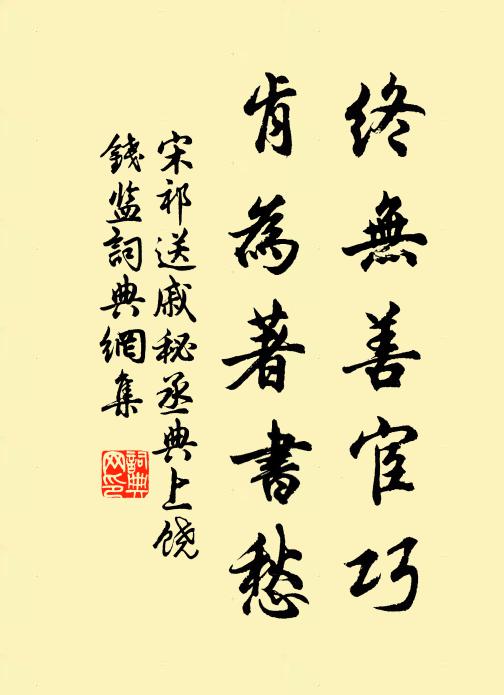 終無善宦巧
肯為著書愁
宋祁送戚秘丞典上饶
錢监詞典網集
詞典网印